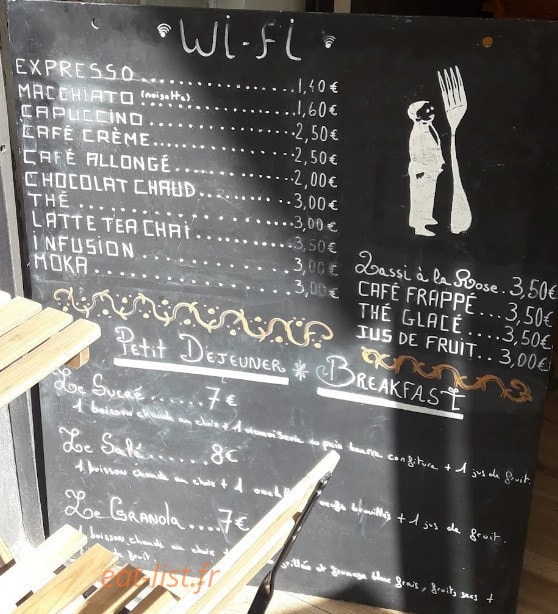 Wi-Fi
EXPRESSO.................1,40€
MACCHIATO (noisette)..........1,60€
CAPUCCINO.................2,50€
CAFÉ CRÈME.................2,50€
CAFÉ ALLONGÉ.................2,00€
CHOCOLAT CHAUD..........3,00€
THÉ.................3,00€
LATTE TEA CHAI..........3,50€
INFUSION.................3,00€
MOKA.................3,00€
Lassi à la Rose.3,50€
CAFÉ FRAPPÉ...3,50€
THÉ GLACÉ.....3,50€
JUS DE FRUIT..3,00€
PETIT DEJEUNER * BREAKFAST
Le Sucré......7€
1 boisson chaude au choix + 1 pain beurre confiture + 1 jus de fruit.
Le Salé.....8€
1 boisson chaude au choix + 1 brouillés + 1 jus de fruit.
Le GRANOLA....7€
1 boisson chaude au choix + grillés et fromage blanc frais, fruits secs +
de fruit.
eat-list.fr